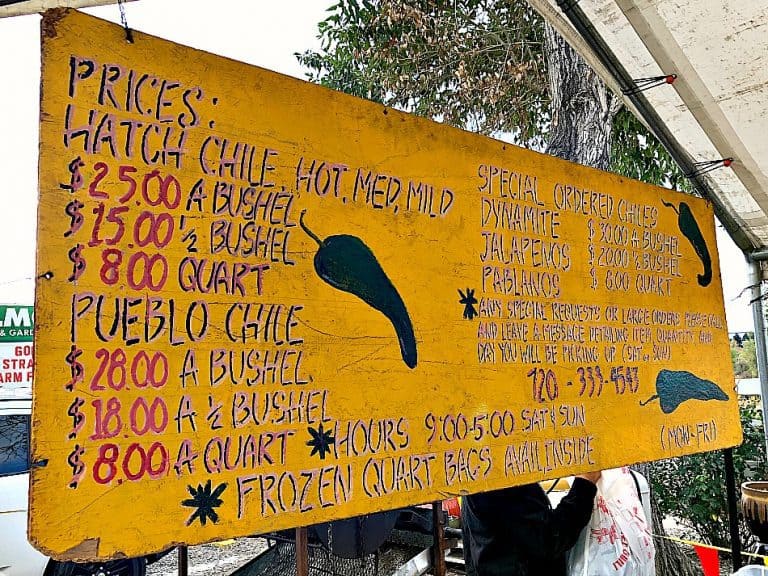 PRICES:
HATCH CHILE, HOT, MED, MILD
$25.00 A BUSHEL
$15.00 ½ BUSHEL
$8.00 QUART
PUEBLO CHILE
$28.00 A BUSHEL
$18.00 A ½ BUSHEL
$8.00 A QUART
SPECIAL ORDERED CHILES
DYNAMITE $30.00 A BUSHEL
JALAPENOS $20.00 ½ BUSHEL
PABLANOS $ 8.00 QUART
ANY SPECIAL REQUESTS OR LARGE ORDERS PLEASE CALL
AND LEAVE A MESSAGE DETAILING ITEM, QUANTITY AND
DAY YOU WILL BE PICKING UP (SAT & SUN)
HOURS 9:00-5:00 SAT & SUN (MON-FRI)
FROZEN QUART BAGS AVAIL. INSIDE
& GARD
STRA
ARM F